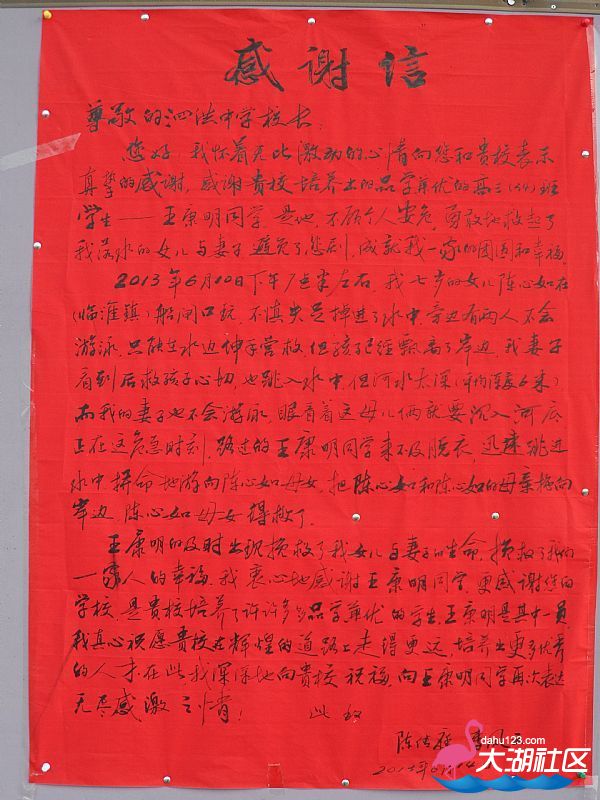 感谢信
尊敬的泗洪中学校长：
您好，我怀着无比激动的心情向您和贵校表示
真挚的感谢，感谢贵校培养出的品学兼优的高三(44)班
学生——王康明同学，是他，不顾个人安危，勇敢地救起了
我落水的女儿与妻子避免了悲剧，成就我一家的团圆和幸福。
2013年6月10日下午1点半左右，我七岁的女儿陈心如在
(临淮镇)船闸口玩，不慎失足掉进了水中，旁边有两人不会
游泳，只能在水边伸手营救，但孩子已经飘离了岸边，我妻子
看到后救孩子心切，也跳入水中，但河水太深(年内深度6米)
而我的妻子也不会游泳，眼看着这母儿俩就要沉入河底
正在这危急时刻，路过的王康明同学来不及脱衣，迅速跳进
水中拼命地游向陈心如母女，把陈心如和陈心如的母亲拖向
岸边，陈心如母女得救了。
王康明的及时出现挽救了我女儿与妻子的生命，挽救了我们
一家人的幸福，我衷心地感谢王康明同学，更感谢您的
学校，是贵校培养了许许多多品学兼优的学生，王康明是其中一员，
我真心祝愿贵校在辉煌的道路上走得更远，培养出更多优秀
的人才在此我深深地向贵校祝福，向王康明同学再次表达
无尽感激之情！ 此致
陈
2013年6月14
dahu123.com
大湖社区